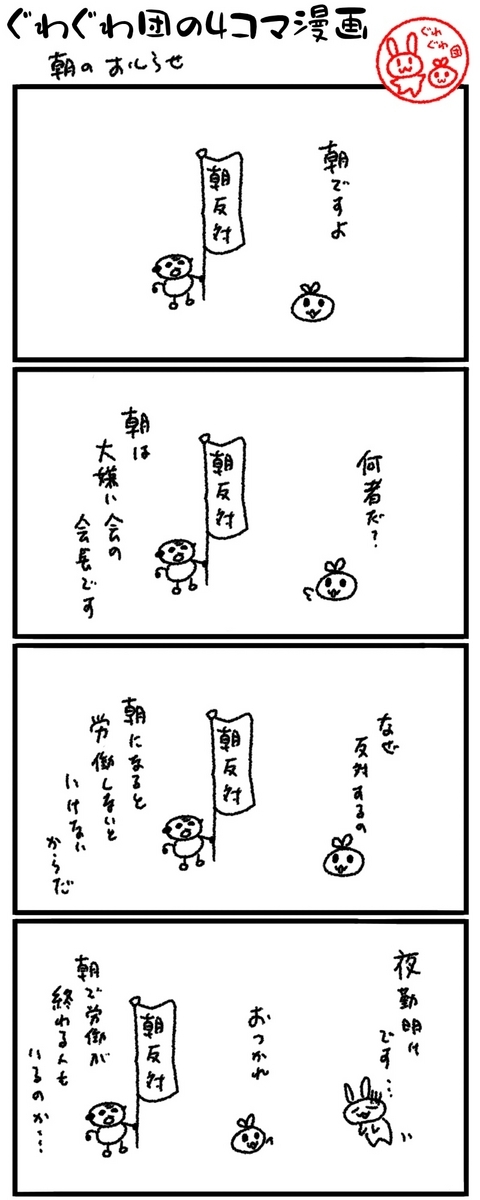 ぐわぐわ団の4コマ漫画
ぐわ
ぐわ
団
朝のおしらせ
朝ですよ
朝反対
何者だ?
朝反対
朝は
大嫌い会の
会長です
なぜ
反対するの
朝反対
朝になると
労働しないと
いけない
からだ
夜勤明け
です…
おつかれ
朝反対
朝で労働が
終わる人も
いるのか…